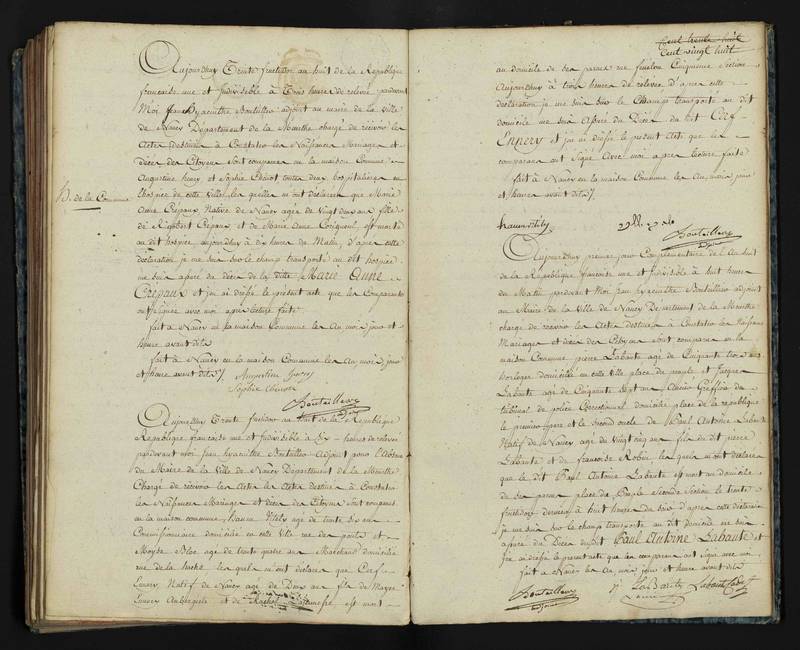 Aujourdhuy Trente fructidor an huit de la Republique
française une et Indivisible à Trois heures de relevé pardevant
Moi Hyacinthe Boutaillier adjoint au maire de la ville
de Nancy Departement de la Meurthe chargé de recevoir les
Actes destinés à Constater les Naissances Mariages et
Décès des Citoyens sont comparues en la maison Commune
Augustine henry et Sophie toutes deux hospitalieres en
L'hospice de cette Ville les quelles m'ont déclarées que Marie
H. de la Commune
Anne Crépaux Native de Nancy agée de Vingt deux ans fille
de Crepaux et de Marie Anne est morte
au dit hospice aujourdhuy à dix heures du Matin, d'après cette
déclaration je me suis sur le champ transporté au dit hospice
me suis assuré du décès de la ditte Marie Anne
Crépaux et j'ai dréssé le présent acte que les Comparantes
ont signées avec moi après lecture faite
fait à Nancy en la maison Commune les An mois jour et
heure avant dits
fait à Nancy en la maison Commune les An, mois, jour
et heure avant dits
Augustine henry
Sophie
Boutaillier
Adjoint
Aujourdhuy Trente fructidor an huit de la République
Republique française une et Indivisible à Six heures de relevé
pardevant moi jean hyacinthe Boutaillier Adjoint pour l'Absence
du Maire de la Ville de Nancy Departement de la Meurthe
Chargé de recevoir les Actes les Actes destinés à Constater
les Naissances Mariages et décès des Citoyens sont comparus
en la maison commune, agé de trente six ans
Commissionnaire domicilié en cette Ville rue des ponts et
Moyse Bloc agé de trente quatre ans Marchand domicilié
rue de la les quels m'ont déclaré que Cerf
Ennery, Natif de Nancy agé de Deux ans fils de Mayer
Ennery Aubergiste et de Rachel est mort
Cent trente huit
Cent vingt huit
au domicile de ses pères rue fenelon Cinquieme Section
Aujourdhuy à trois heures de relevé d'après cette
declaration je me suis sur le Champ transporté au dit
domicile me suis Assuré du Décès du dit Cerf
Ennery et j'ai dréssé le présent Acte que les
comparans ont Signé Avec moi après lecture faite
fait à Nancy en la maison Commune les An, mois, jour
et heure avant dits
Boutaillier
Adjoint
Aujourdhuy premier jour Complémentaire de l'An huit
de la République française une et Indivisible à huit heures
du Matin pardevant Moi jean hyacinthe Boutaillier adjoint
au Maire de la Ville de Nancy Departement de la Meurthe
chargé de recevoir les Actes destinés à Constater les Naissances
Mariages et décès des Citoyens sont comparus en la
maison Commune pierre Labaute agé de Cinquante trois ans
horloger domicilié en cette Ville place du peuple et Jacques
Labaute agé de Cinquante sept ans Ancien Greffier du
tribunal de police Correctionnel domicilié place de la republique
le premier père et le second oncle de Paul Antoine Labaute
Natif de la Nancy agé de Vingt cinq ans fils du dit pierre
Labaute et de françoise Robin les quels m'ont déclaré
que le dit Paul Antoine Labaute est mort au domicile
de ses pères place du Peuple Seconde Section le trente
fructidor dernier à huit heures du soir d'après cette déclaration
je me suis sur le champ transporté au dit domicile me suis
assuré du Décès du dit Paul Antoine Labaute et
j'ai dréssé le présent acte que les comparans ont signé avec moi
fait à Nancy les An, mois, jour et heure avant dits
Boutaillier
adjoint